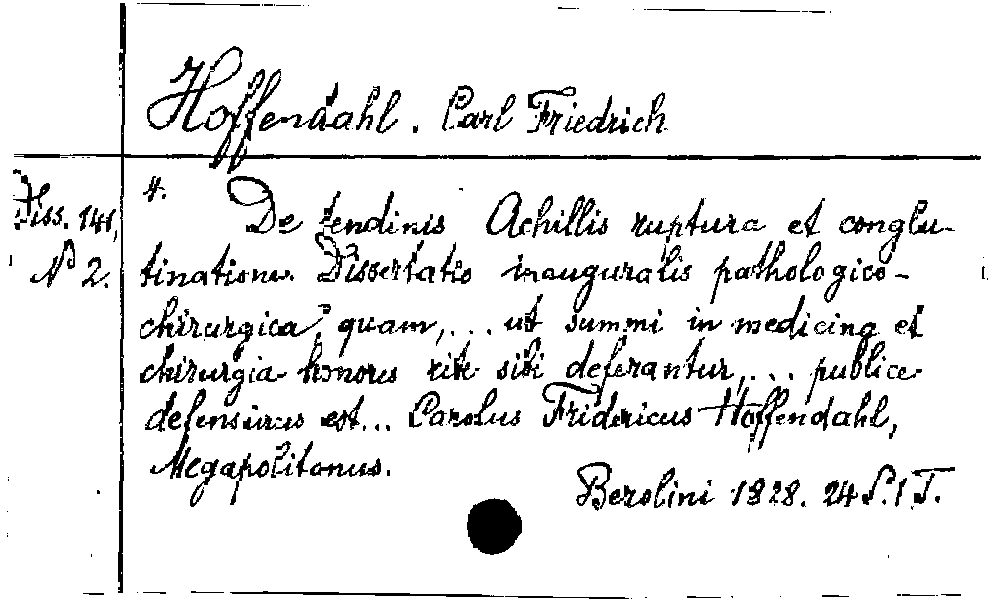 Hoffendahl. Carl Friedrich
Diss. 141,
No 2.
4.
De tendinis Achillis ruptura et conglu-
tinatione. Dissertatio inauguralis pathologico-
chirurgica, quam,... ut summi in medicina et
chirurgia honores rite sibi deferantur,... publice
defensurus est... Carolus Fridericus Hoffendahl,
Megapolitanus.
Berolini 1828. 24 S. 1 T.